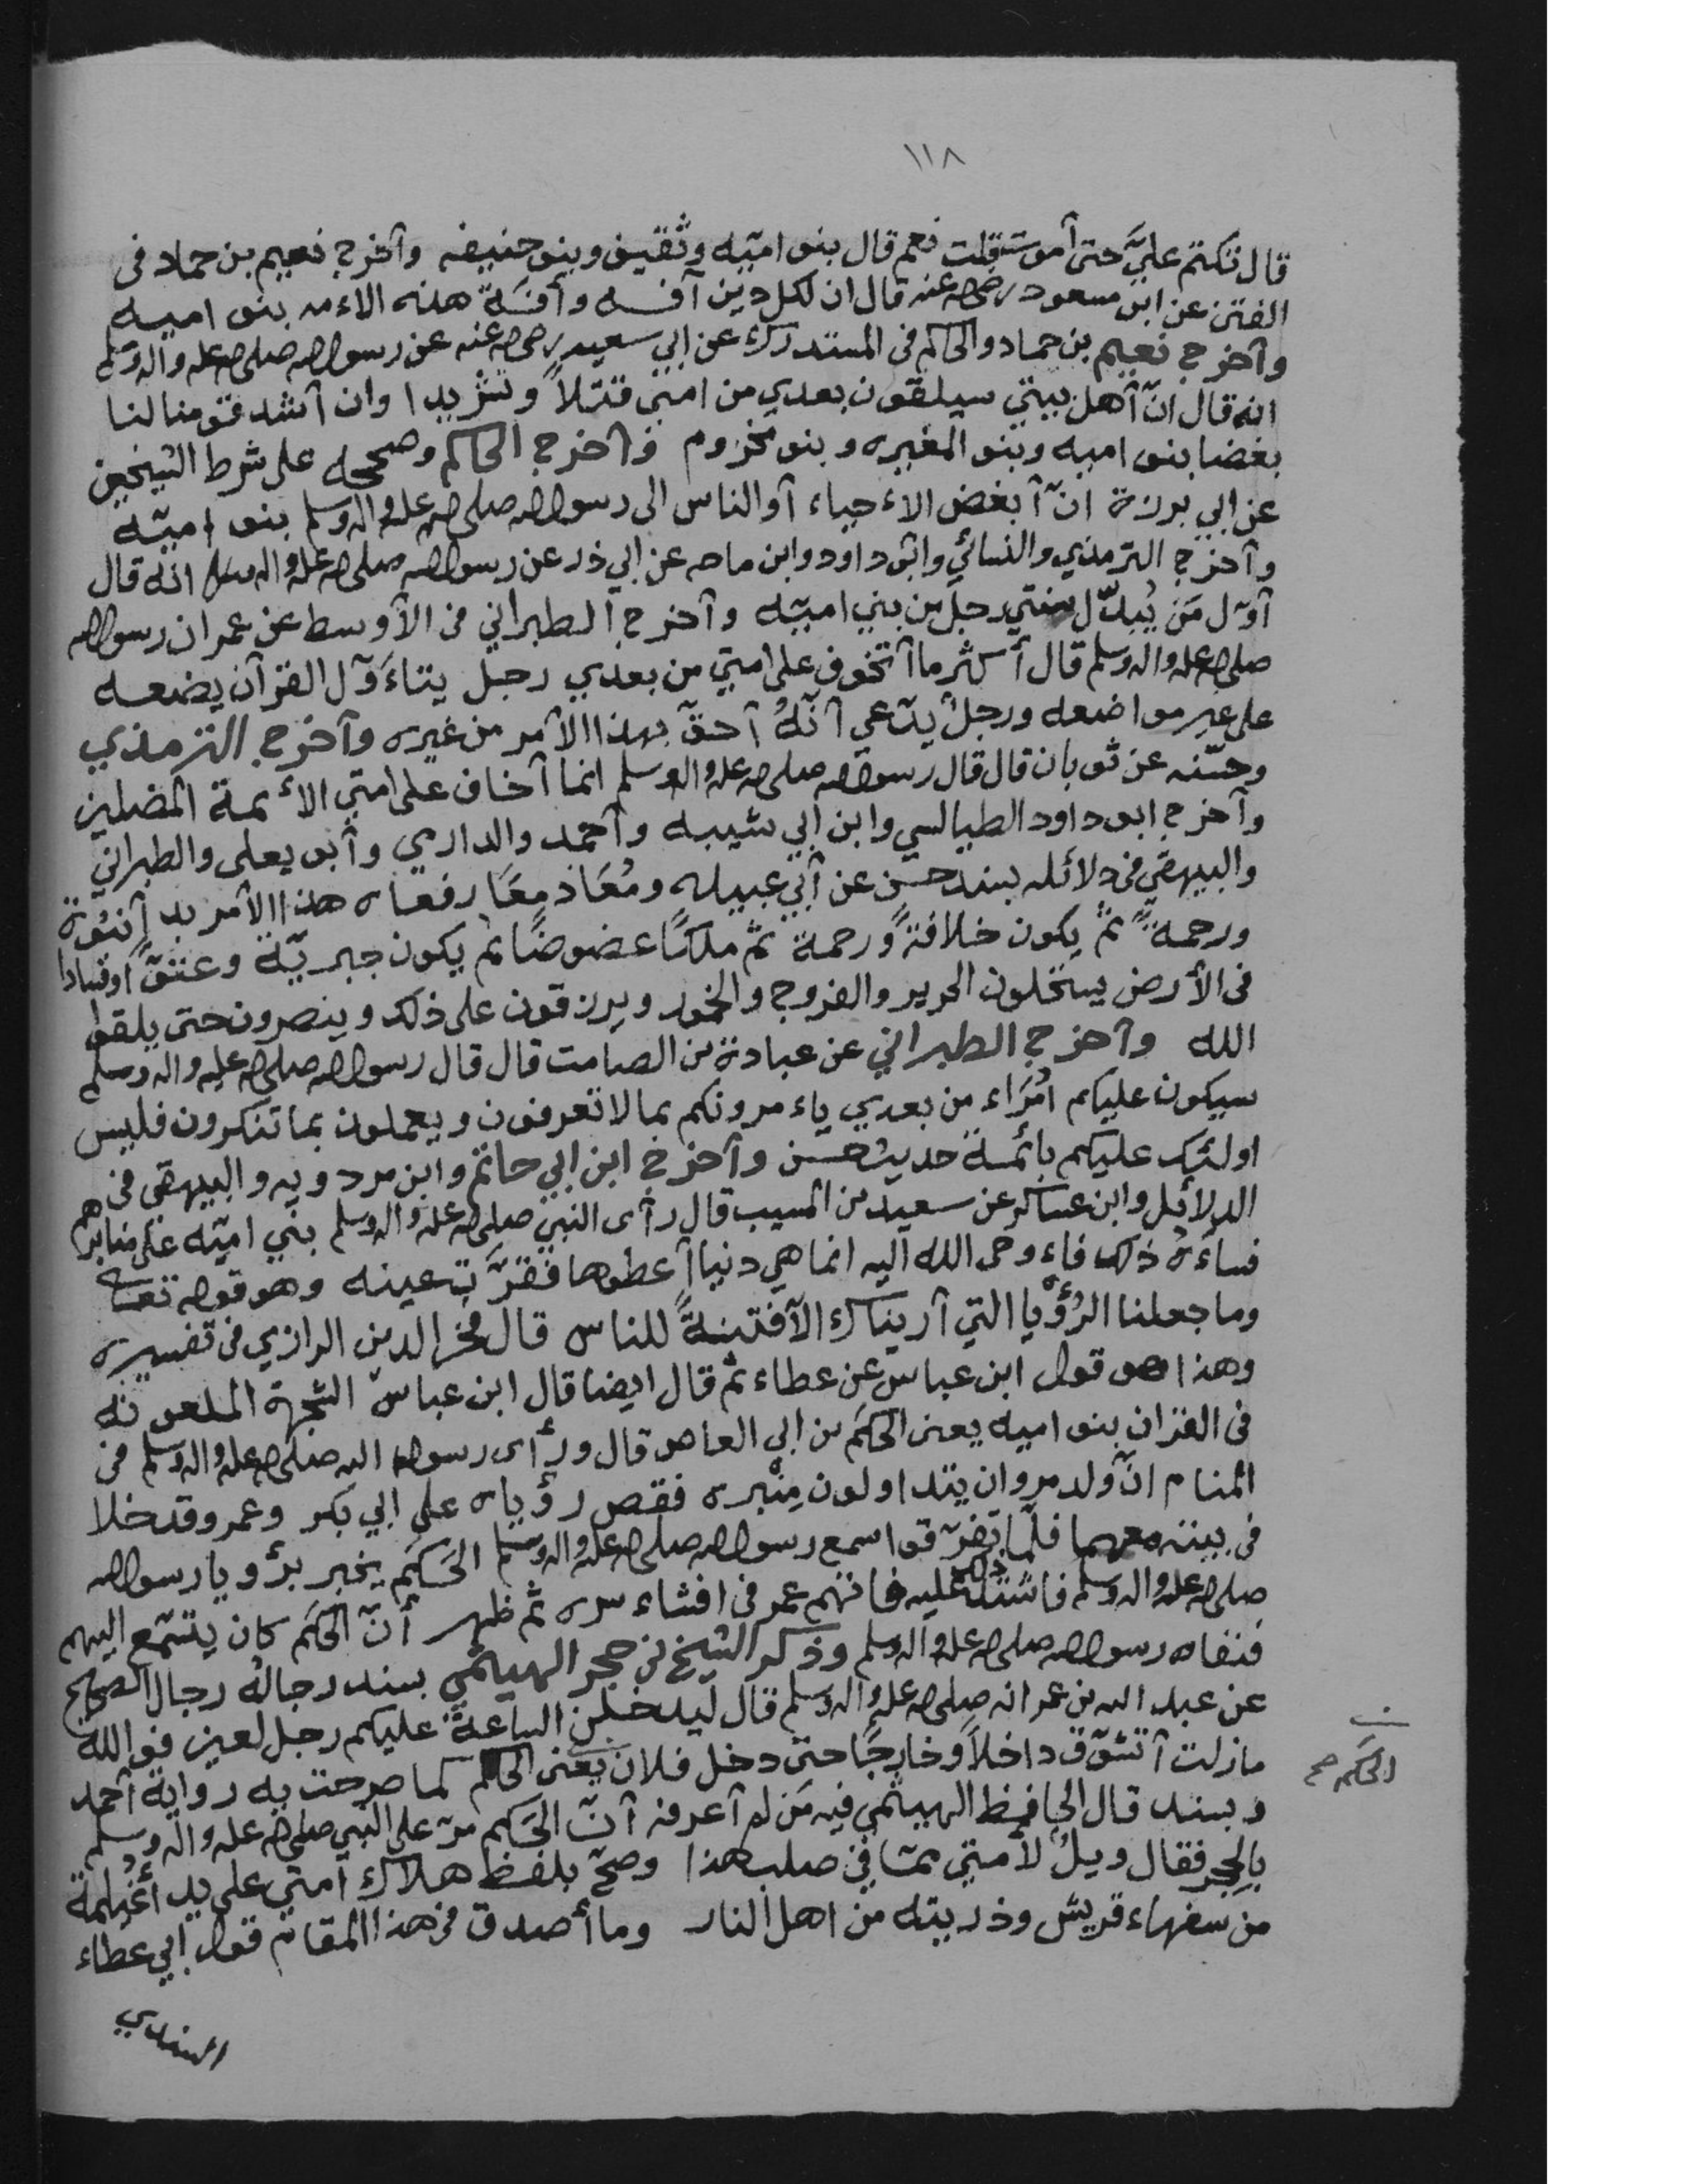 ١١٨
قال تكتم عليَّ حتى أموت قلت نعم قال بنو اميّه وثقيف وبنو حنيفه وآخرج نعيم بن حماد فى
الفتن عن ابن مسعود رضي الله عنه قال ان لكل دين آفه وآفةُ هذه الاءمه بنو اميه
وآخرج نعيم بن حماد والحاكم فى المستدرك عن ابي سعيد رضي الله عنه عن رسول الله صلى الله عليه واله وسلم
انه قال انّ آهل بيتي سيلقون بعدي من امتي قتلاً وتشريدا وان آشد قومنا لنا
بغضا بنو اميه وبنو المغيره وبنو مخزوم وآخرج الحاكم وصححه على شرط الشيخين
عن ابي برزة انّ آبغض الاءحياء آو الناس الى رسول الله صلى الله عليه واله وسلم بنو اميّه
وآخرج الترمذي والنسائي وابو داود وابن ماجه عن ابي ذر عن رسول الله صلى الله عليه واله وسلم انه قال
آوّل مَن يُبدّل سنتي رجل من بني اميّه وآخرج الطبراني فى الآوسط عن عمر ان رسول الله
صلى الله عليه واله وسلم قال أكثر ما آتخوف على امتي من بعدي رجل يتاءَوّل القرآن يضعه
على غير مواضعه ورجلٌ يدّعي آنّهُ آحقّ بهذا الآمر من غيره وآخرج الترمذي
وحسّنه عن ثوبان قال قال رسول الله صلى الله عليه واله وسلم انما آخاف على امتي الأئمة المضلين
وآخرج ابو داود الطيالسي وابن ابي شيبه وآحمد والدارمي وآبو يعلى والطبراني
والبيهقي فى دلائله بسند حسن عن آبي عبيده ومُعَاذ معًا رفعاه هذا الآمر بدآ نبُوّة
ورحمةً ثم يكون خلافةً ورحمة ثم ملكًا عضوضًا ثم يكون جبريّة وعتوّا وفسادا
فى الأرض يستحلون الحرير والفروج والخمور ويرزقون على ذلك وينصرون حتى يلقوا
الله وآخرج الطبراني عن عبادة بن الصامت قال قال رسول الله صلى الله عليه واله وسلم
سيكون عليكم اُمَرَاء من بعدي ياءمرونكم بما لا تعرفون ويعملون بما تنكرون فليس
اولئك عليكم بائمة حديث حسن وآخرج ابن ابي حاتم وابن مردويه والبيهقي فى
الدلائل وابن عساكر عن سعيد بن المسيب قال رأى النبي صلى الله عليه واله وسلم بني اميّه على منابرهم
فساءَهُ ذلك فاءوحى الله آليه انما هي دنيا آعطوها فقرّت عينه وهو قوله تعالى
وما جعلنا الرُؤيا التي آريناك الآ فتنةً للناس قال فخر الدين الرازي فى تفسيره
وهذا هو قول ابن عباس عن عطاء ثم قال ايضا قال ابن عباس الشجرة الملعونه
فى القران بنو اميه يعنى الحَكَم بن ابي العاص قال ورأى رسول الله صلى الله عليه واله وسلم فى
المنام انّ ولد مروان يتداولون مِنْبره فقص رؤياه على ابي بكر وعمر وقد خلا
فى بيته معهما فلمّا تفرّقوا سمع رسول الله صلى الله عليه واله وسلم الحَكَم يخبر برؤيا رسول الله
صلى الله عليه واله وسلم فاشتد ذلك عليه فاتهم عمر فى افشاء سره ثم ظهر أنّ الحَكَم كان يتسمّع اليهم
فنفاه رسول الله صلى الله عليه واله وسلم وذكر الشيخ بن حجر الهيتمي بسند رجالُه رجال الصحيح
عن عبد الله بن عمر انه صلى الله عليه واله وسلم قال ليدخلن الساعة عليكم رجل لعين فوالله
مازلت آتشوّق داخلاً وخارجًا حتى دخل فلان يعنى الحاكم كما صرحت به رواية آحمد
الحكم صح
وبسند قال الحافظ الهيثمي فيه مَن لم آعرفه آنّ الحَكم مرّ على النبي صلى الله عليه واله وسلم
بالحِجر فقال ويلٌ لآمتي ممّا فى صلب هذا وصحّ بلفظ هلاك امتي على يد أُغيلمة
من سفهاء قريش وذريته من اهل النار وما أصدق فى هذا المقام قول ابي عطاء
السندي